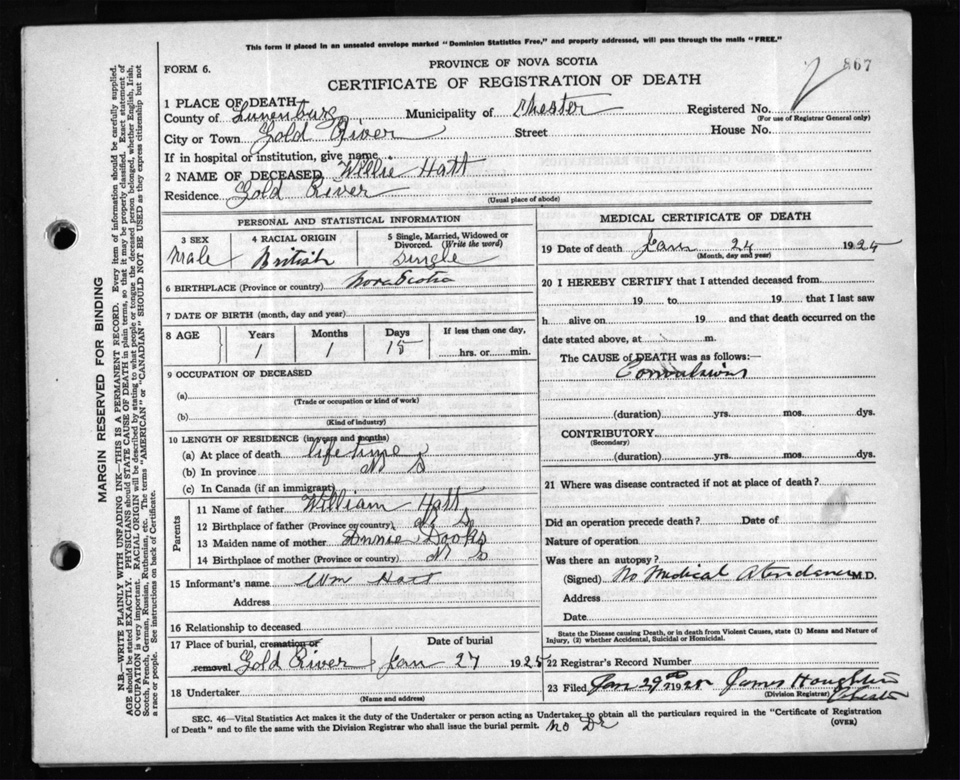 This form if placed in an unsealed envelope marked "Dominion Statistics Free," and properly addressed, will pass through the mails "FREE."
867
FORM 6.
PROVINCE OF NOVA SCOTIA
CERTIFICATE OF REGISTRATION OF DEATH
1 PLACE OF DEATH
County of Lunenburg Municipality of Chester Registered No.
(For use of Registrar General only)
City or Town Gold River Street House No.
If in hospital or institution, give name
2 NAME OF DECEASED Willie Hatt
Residence Gold River
(Usual place of abode)
PERSONAL AND STATISTICAL INFORMATION
3 SEX 4 RACIAL ORIGIN 5 Single, Married, Widowed or Divorced. (Write the word)
Male British Single
6 BIRTHPLACE (Province or country) Nova Scotia
7 DATE OF BIRTH (month, day and year)
8 AGE Years Months Days If less than one day,
1 1 15 hrs. or min.
9 OCCUPATION OF DECEASED
(a)
(Trade or occupation or kind of work)
(b)
(Kind of industry)
10 LENGTH OF RESIDENCE (in years and months)
(a) At place of death life time
(b) In province N S
(c) In Canada (if an immigrant)
Parents
11 Name of father William Hatt
12 Birthplace of father (Province or country) N S
13 Maiden name of mother Annie Dooks
14 Birthplace of mother (Province or country) N S
15 Informant's name Wm Hatt
Address
16 Relationship to deceased
17 Place of burial, cremation or removal Date of burial
Gold River Jan 27 1925
18 Undertaker
(Name and address)
MEDICAL CERTIFICATE OF DEATH
19 Date of death Jan 24 1925
(Month, day and year)
20 I HEREBY CERTIFY that I attended deceased from
19 to 19 that I last saw
h alive on 19 and that death occurred on the
date stated above, at m.
The CAUSE of DEATH was as follows:—
Convulsions
(duration) yrs. mos. dys.
CONTRIBUTORY
(Secondary)
(duration) yrs. mos. dys.
21 Where was disease contracted if not at place of death?
Did an operation precede death? Date of
Nature of operation
Was there an autopsy?
(Signed) No Medical Atendance M.D.
Address
Date
State the Disease causing Death, or in death from Violent Causes, state (1) Means and Nature of Injury, (2) whether Accidental, Suicidal or Homicidal.
22 Registrar's Record Number
23 Filed Jan 29th 1925 James Houghton
(Division Registrar) Chester
SEC. 46—Vital Statistics Act makes it the duty of the Undertaker or person acting as Undertaker to obtain all the particulars required in the "Certificate of Registration
of Death" and to file the same with the Division Registrar who shall issue the burial permit. No Dr (OVER)
MARGIN RESERVED FOR BINDING
N.B.—WRITE PLAINLY WITH UNFADING INK—THIS IS A PERMANENT RECORD. Every item of information should be carefully supplied.
AGE should be stated EXACTLY. PHYSICIANS should STATE CAUSE OF DEATH in plain terms, so that it may be properly classified. Exact statement of
OCCUPATION is very important. RACIAL ORIGIN will be described by stating to what people or tongue the deceased person belonged, whether English, Irish,
Scotch, French, German, Russian, Ruthenian, etc. The terms "AMERICAN" or "CANADIAN" SHOULD NOT BE USED as they express citizenship but not
a race or people. See instructions on back of Certificate.